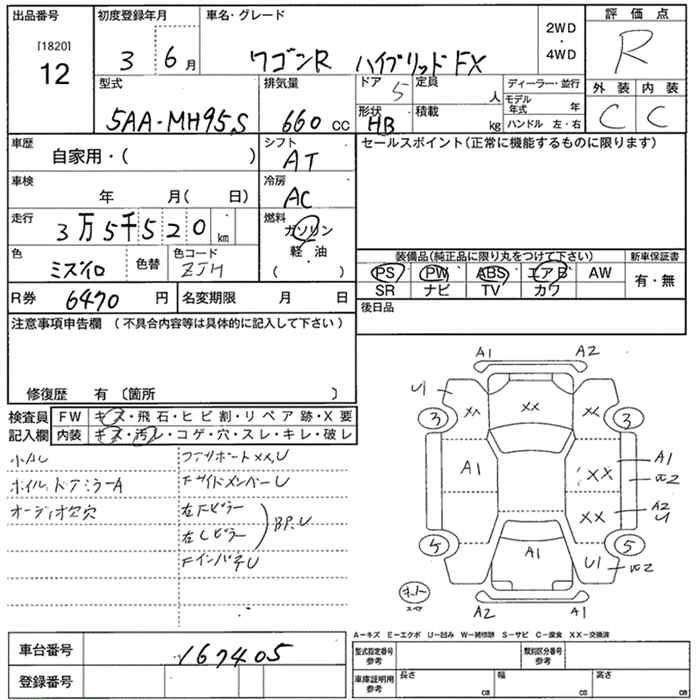 出品番号 初度登録年月 車名・グレード 2WD・4WD 評価点
[1820]
12
3 6月 ワゴンR ハイブリッドFX R
型式 排気量 ドア 5 定員 人 ディーラー・並行 外装 内装
5AA-MH95S 660cc 形状 HB 積載 kg モデル年式 年 C C
ハンドル 左・右
車歴 自家用・( ) シフト AT セールスポイント(正常に機能するものに限ります)
車検 年 月( 日) 冷房 AC
走行 3万5千520km 燃料 ガソリン
軽・油
( )
色 ミズイロ 色替 色コード ZJH 装備品(純正品に限り丸をつけて下さい) 新車保証書
PS PW ABS エアB AW 有・無
SR ナビ TV カワ
R券 6470円 名変期限 月 日 後日品
注意事項申告欄 (不具合内容等は具体的に記入して下さい)
修復歴 有 〔箇所 〕
検査員記入欄 FW キズ・飛石・ヒビ割・リペア跡・X要
内装 キズ・汚レ・コゲ・穴・スレ・キレ・破レ
小AU XX,U
ホイル、ドアミラーA FサイドメンバーU
オーディオ欠穴 右Fピラー
右Cピラー BP.U
FインパネU
A1 A2
U1 XX XX XX
3 3
A1 XX A1
W2
XX A2
U
5 A1 U1 W2 5
スペア
A2 A1
A-キズ E-エクボ U-凹み W-補修跡 S-サビ C-腐食 XX-交換済
車台番号 167405 型式指定番号参考 類別区分番号参考
登録番号 車庫証明用参考 長さ cm 幅 cm 高さ cm